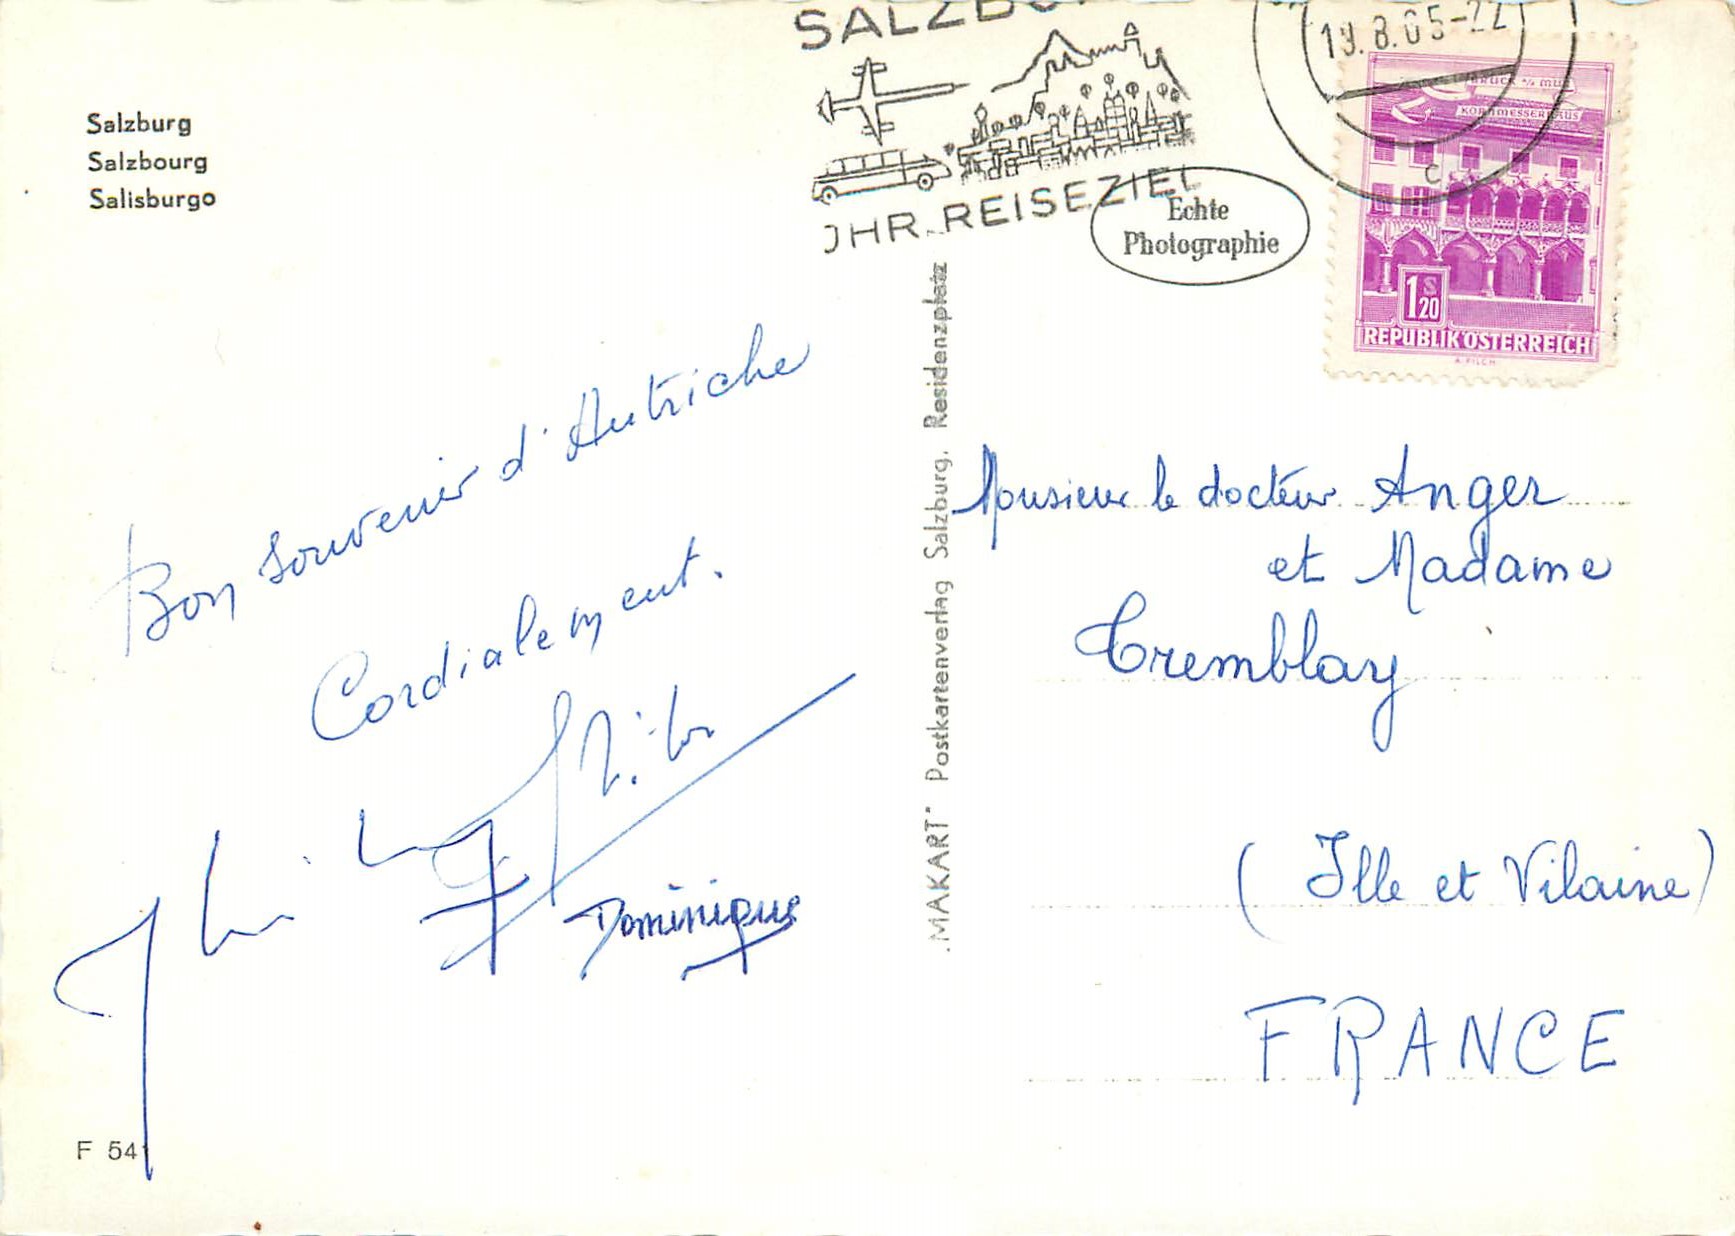 Salzburg
Salzbourg
Salisburgo
SALZBU
JHR REISEZIEL
19.8.65-22
c
Echte
Photographie
BRUCK a/d MUR
KORNMESSERHAUS
1 S 20
REPUBLIK ÖSTERREICH
A. PILCH
Bon souvenir d'Autriche
Cordialement.
Dominique
"MAKART" Postkartenverlag Salzburg, Residenzplatz
Monsieur le docteur Anger
et Madame
Tremblay
(Ille et Vilaine)
FRANCE
F 541